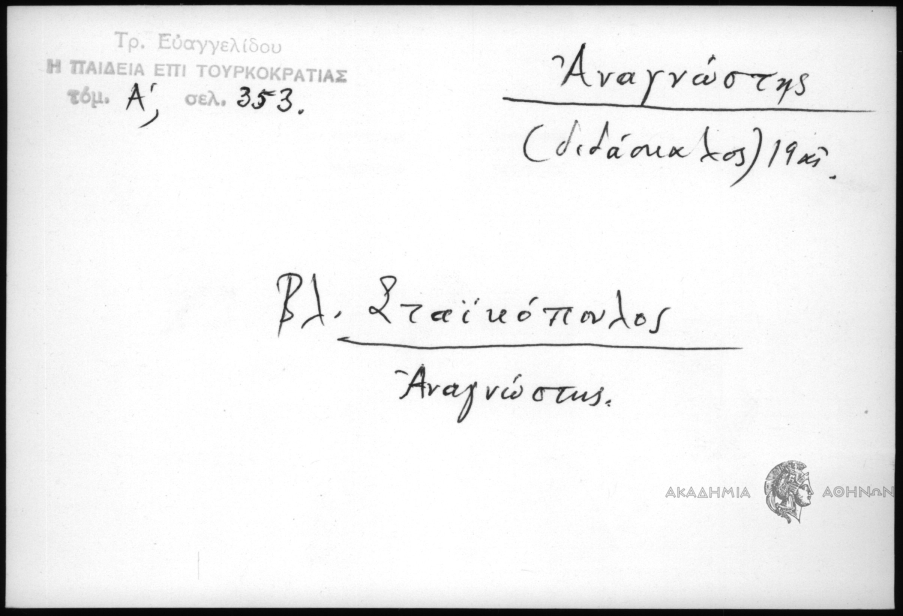 Τρ. Εὐαγγελίδου
Η ΠΑΙΔΕΙΑ ΕΠΙ ΤΟΥΡΚΟΚΡΑΤΙΑΣ
τόμ. Α΄, σελ. 353.
Ἀναγνώστης
(διδάσκαλος) 19 αἰ.
Βλ. Σταϊκόπουλος
Ἀναγνώστης.
ΑΚΑΔΗΜΙΑ ΑΘΗΝΩΝ